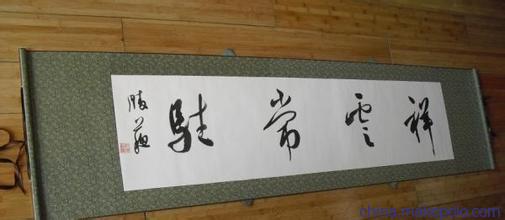 祥雲常駐
china.makepolo.com